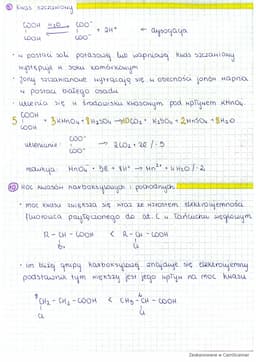 ⑨ Kwas szczawiowy
COOH H₂O COO⁻
| ⇌ | + 2H⁺ ← dysocjacja
COOH COO⁻
• w postaci soli potasowej lub wapniowej kwas szczawiowy
występuje w soku komórkowym
• Jony szczawianowe wytrącają się w obecności jonów wapnia
w postaci białego osadu
• utlenia się w środowisku kwasowym pod wpływem KMnO₄
COOH
5 | + 2KMnO₄ + 3H₂SO₄ → 10CO₂ + K₂SO₄ + 2MnSO₄ + 8H₂O
COOH
COO⁻
utlenianie: | → 2CO₂ + 2e /·5
COO⁻
redukcja: MnO₄⁻ + 5e + 8H⁺ → Mn²⁺ + 4H₂O /·2
⑩ Moc kwasów karboksylowych i pochodnych
• moc kwasu zwiększa się wraz ze wzrostem elektroujemności
fluorowca przyłączonego do at. C w łańcuchu węglowym
R - CH - COOH < R - CH - COOH
| |
Br Cl
• im bliżej grupy karboksylowej znajduje się elektroujemny
podstawnik tym większy jest jego wpływ na moc kwasu
CH₂ - CH₂ - COOH < CH₃ - CH - COOH
| |
Cl Cl
Zeskanowane w CamScanner